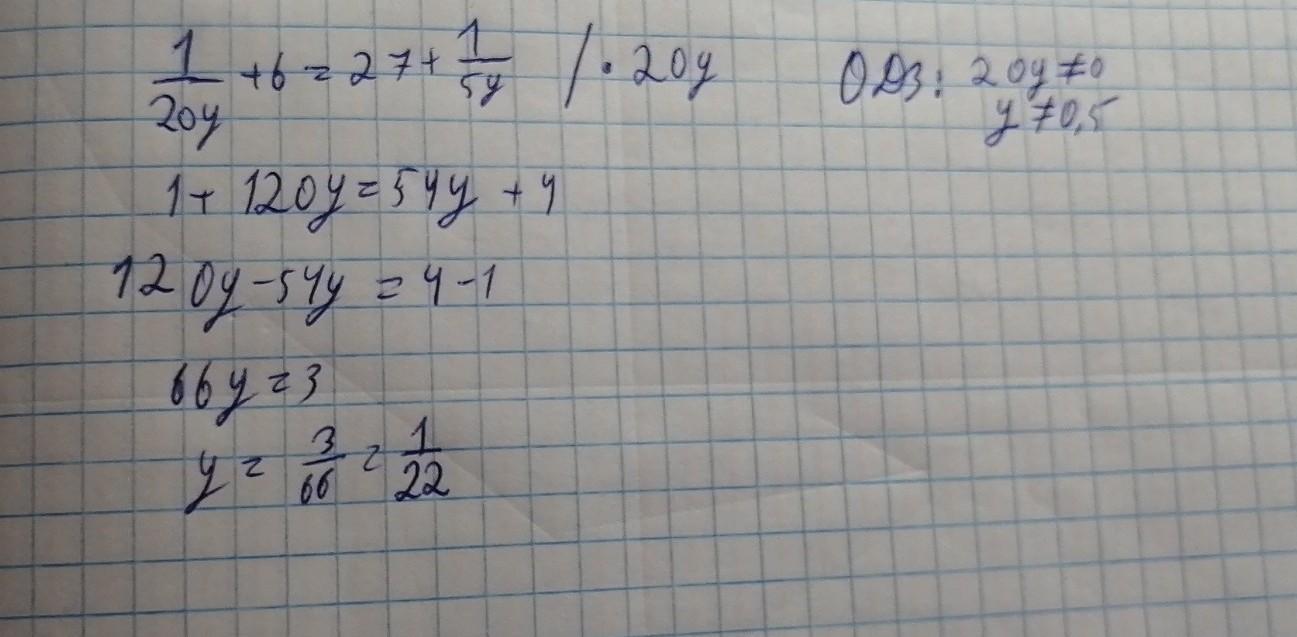 1/20y + 6 = 27 + 1/5y / · 20y ОДЗ: 20y ≠ 0
y ≠ 0,5
1 + 120y = 54y + 4
120y - 54y = 4 - 1
66y = 3
y = 3/66 = 1/22